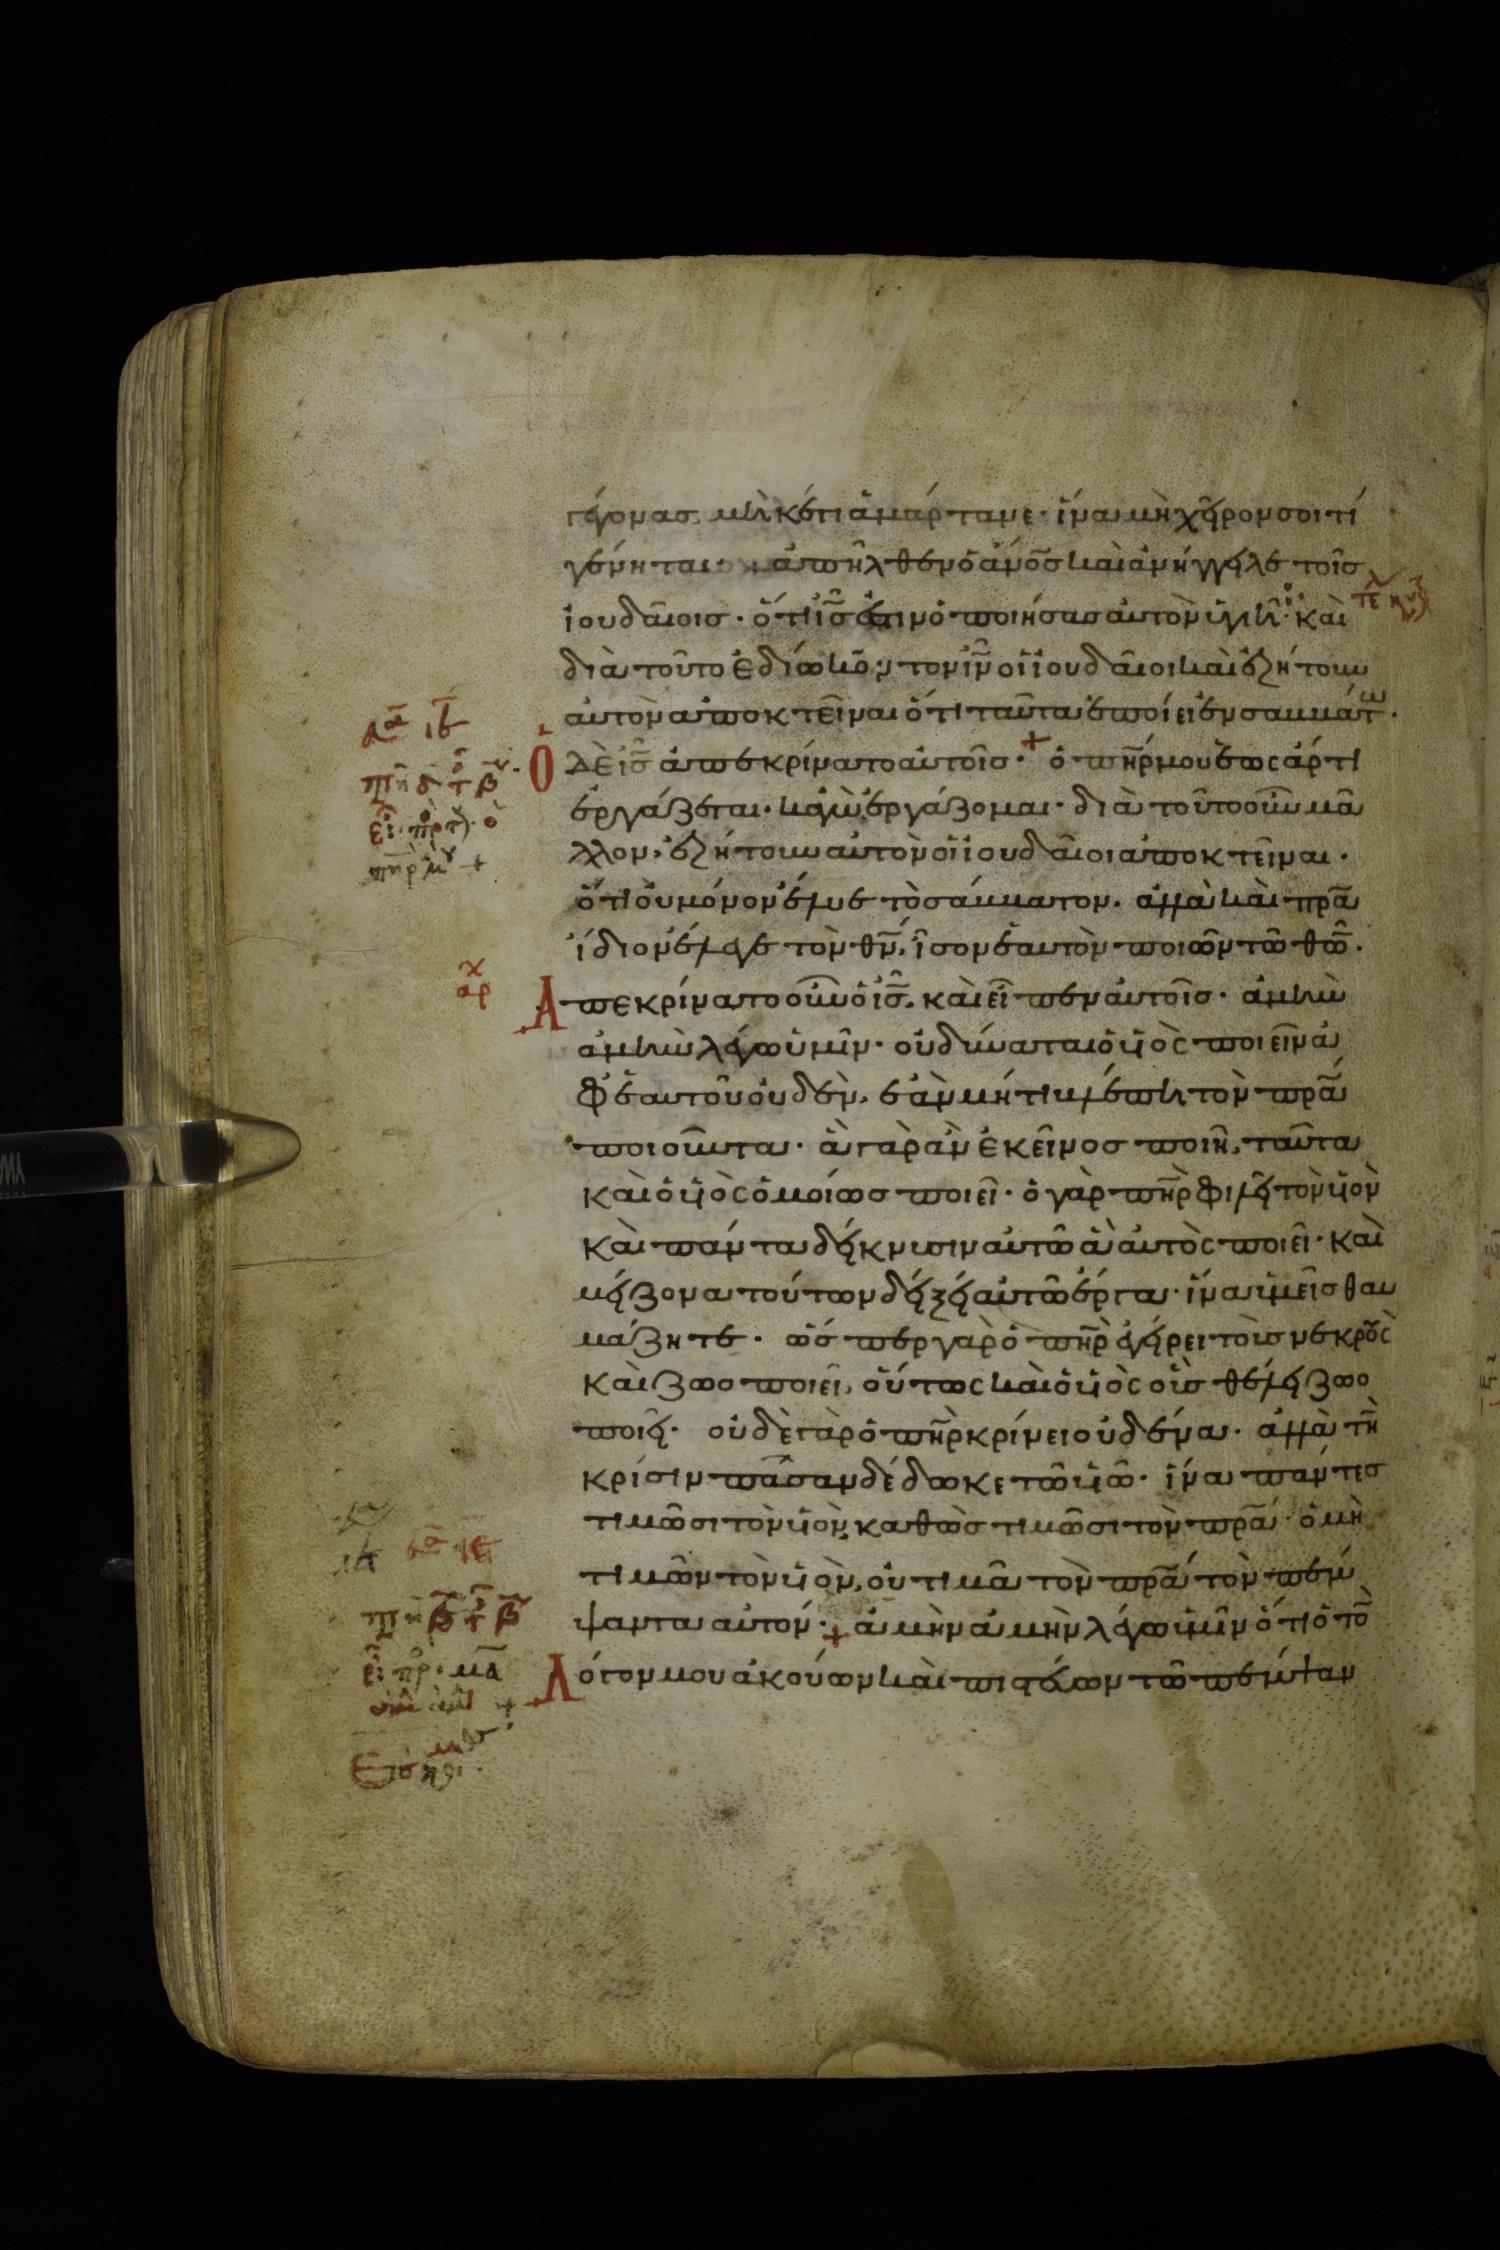 γέγονας μηκέτι ἁμάρτανε· ἵνα μὴ χεῖρον σοι τί
γένηται· ἀπῆλθεν ὁ ἄνο̅σ καὶ ἀνήγγειλε τοῖσ
ἰουδαίοισ · ὅτι ἰ̅σ̅ ἐστιν ὁ ποιήσασ αὐτὸν ὑγιῆ· καὶ
διὰ τοῦτο ἐδίωκον τον ἰ̅ν̅ οἱ ἰουδαῖοι καὶ ἐζήτουν
αὐτὸν ἀποκτεῖναι ὅτι ταῦτα ἐποίει ἐν σαββάτω.
Ὁ δὲ ἰ̅σ̅ ἀπεκρίνατο αὐτοῖσ· + ὁ π̅η̅ρ μου ἕως ἄρτι
ἐργάζεται· κἀγὼ ἐργάζομαι· διὰ τοῦτο οὖν μᾶ
λλον, ἐζήτουν αὐτὸν οἱ ἰουδαῖοι ἀποκτεῖναι·
ὅτι οὐ μόνον ἔλυε τὸ σάββατον. ἀλλὰ καὶ π̅ρ̅α
ἴδιον ἔλεγε τὸν θ̅ν̅, ἴσον ἑαυτὸν ποιῶν τῶ θ̅ω̅.
Ἀπεκρίνατο οὖν ὁ ἰ̅σ̅. καὶ εἶπεν αὐτοῖσ· ἀμὴν
ἀμὴν λέγω ὑμῖν· οὐ δύναται ὁ ὑιὸς ποιεῖν ἀ
φ ἑαυτοῦ οὐδὲν, ἐὰν μή τι βλέπη τὸν π̅ρ̅α
ποιοῦντα· ἃ γὰρ ἂν ἐκεῖνοσ ποιῆ, ταῦτα
καὶ ὁ ὑιὸς ὁμοίωσ ποιεῖ· ὁ γὰρ π̅η̅ρ φιλεῖ τὸν ὑιὸν
καὶ πάντα δείκνυσιν αὐτῶ ἃ αὐτὸς ποιεῖ· καὶ
μείζονα τούτων δείξει αὐτῶ ἔργα· ἵνα ὑμεῖσ θαυ
μάζητε· ὥσπερ γὰρ ὁ π̅η̅ρ ἐγείρει τοὺσ νεκροὺς
καὶ ζωοποιεῖ, οὕτως καὶ ὁ ὑιὸς οὓσ θέλει ζωο
ποιεῖ· οὐδὲ γὰρ ὁ π̅η̅ρ κρίνει οὐδένα· ἀλλὰ τὴν
κρίσιν πᾶσαν δέδωκε τῶ ὑιῶ· ἵνα παντεσ
τιμῶσι τὸν ὑιὸν, καθὼσ τιμῶσι τὸν π̅ρ̅α· ὁ μὴ
τιμῶν τὸν ὑιὸν, οὐ τιμᾶ τὸν π̅ρ̅α τὸν πέμ
ψαντα αὐτόν· + ἀμὴν ἀμὴν λέγω ὑμῖν ὅτι ὁ τὸν
Λόγον μου ἀκούων καὶ πιστεύων τῶ πέμψαν